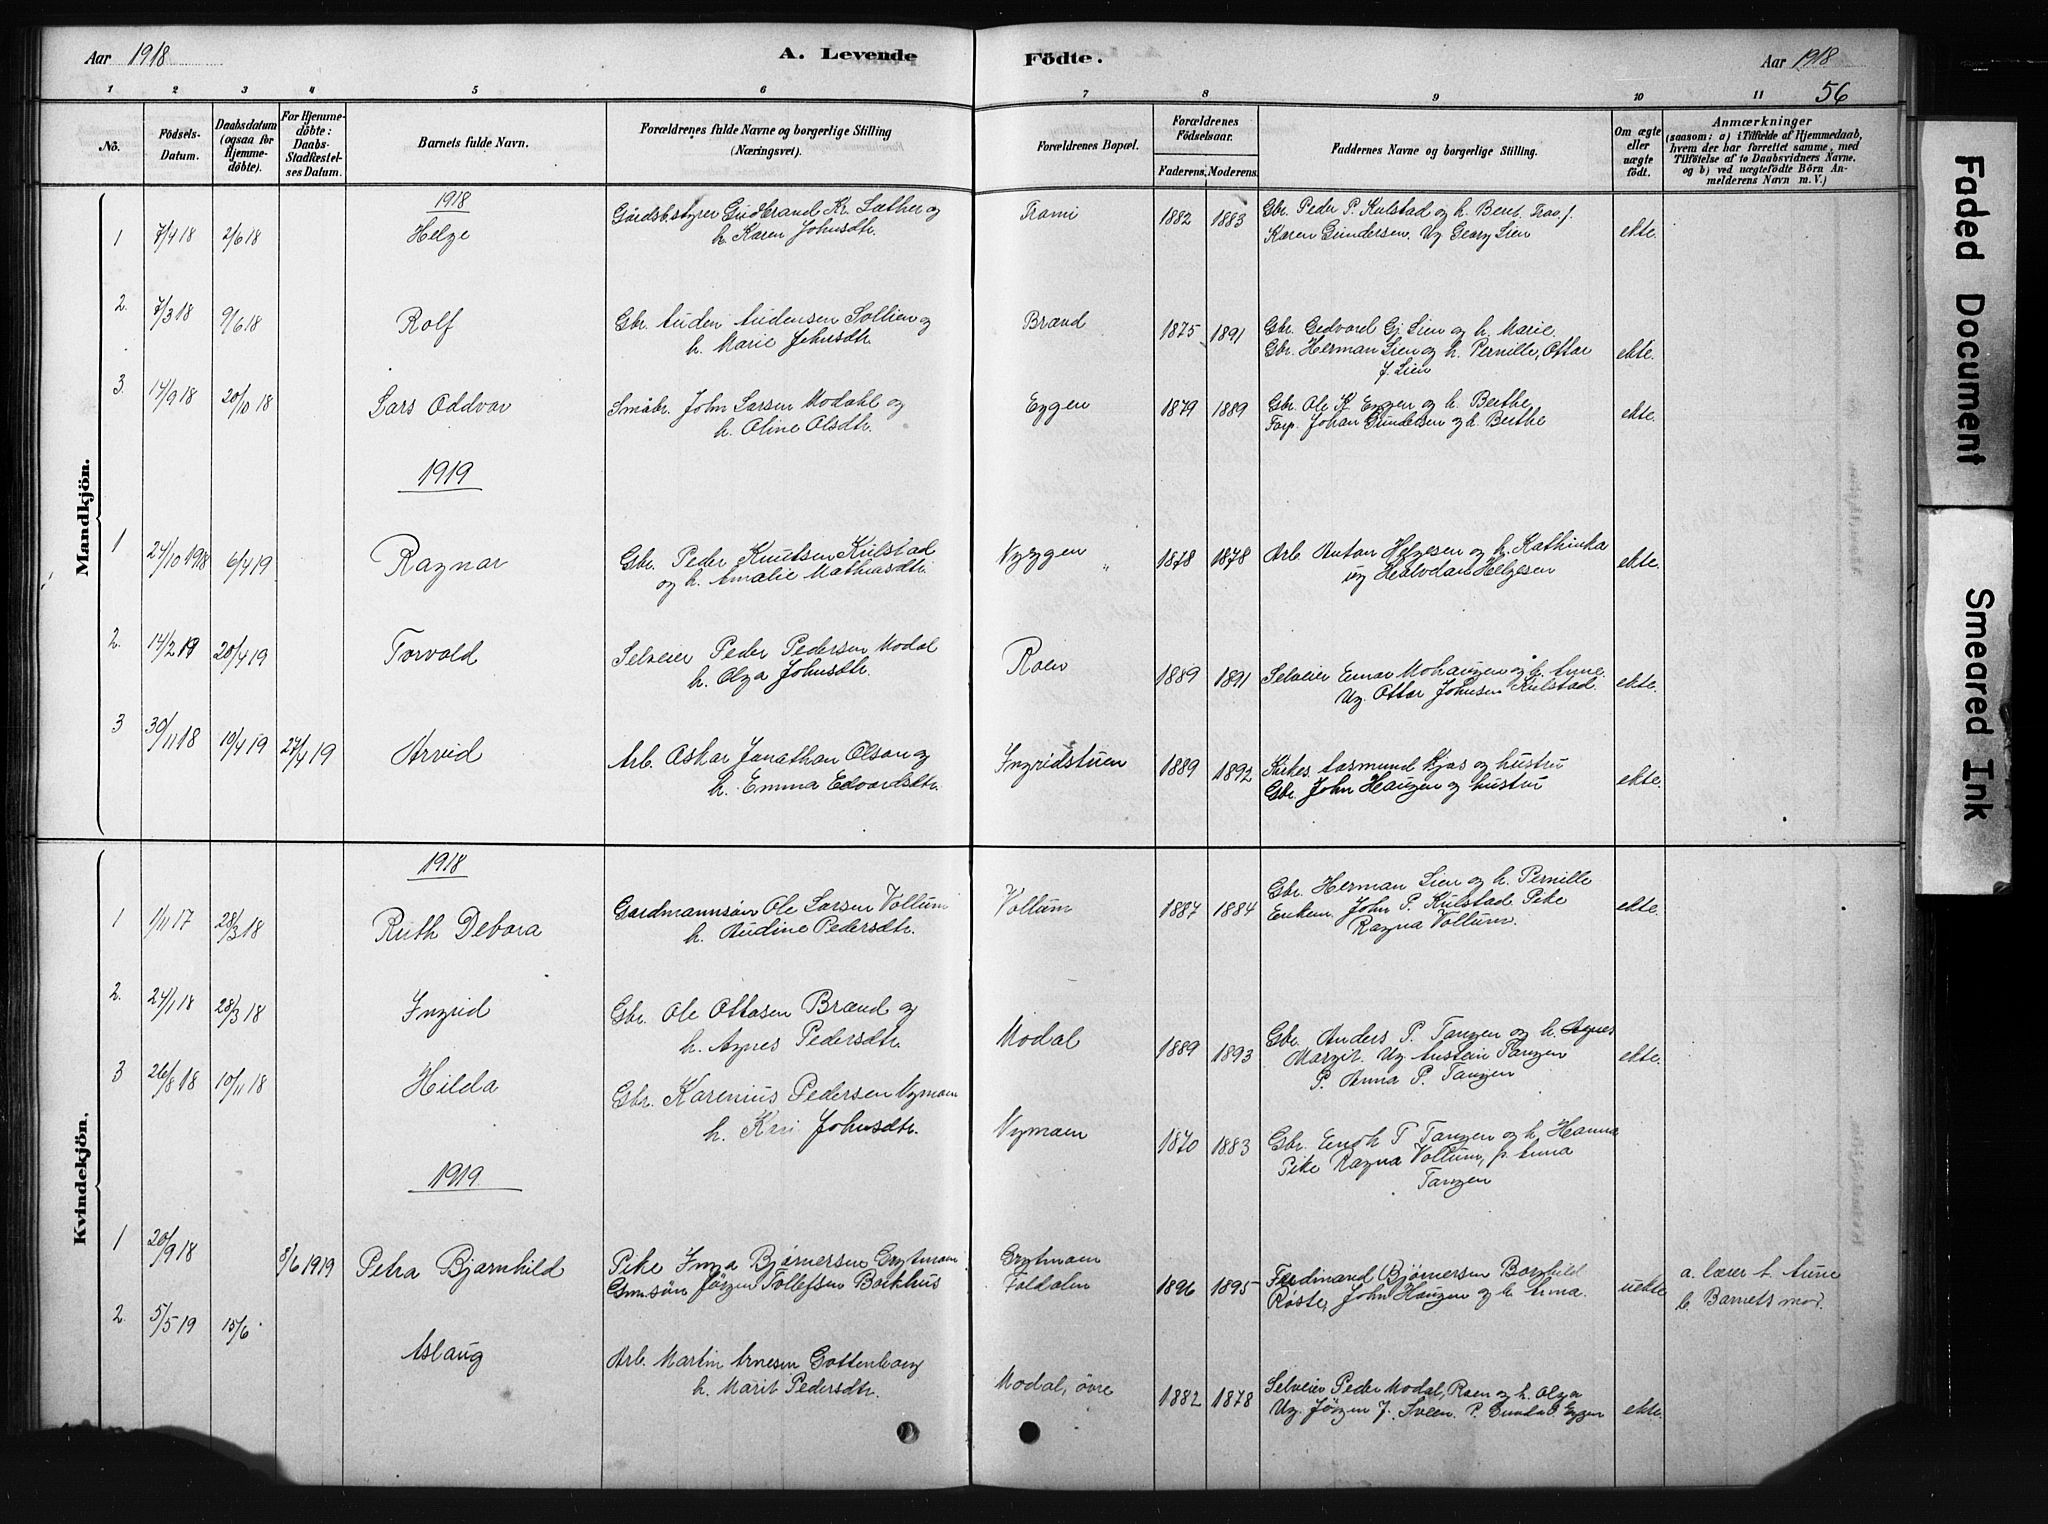 Aar 1918
A. Levende
Födte.
Aar 1918
56
1 2 3 4 5 6 7 8 9 10 11
No.
Födsels-Datum.
Daabsdatum (ogsaa for Hjemmedöbte).
For Hjemmedöbte: Daabs-Stadfæstelses Datum.
Barnets fulde Navn.
Forældrenes fulde Navne og borgerlige Stilling (Næringsvei).
Forældrenes Bopæl.
Forældrenes Födselsaar.
Faderens. Moderens.
Faddernes Navne og borgerlige Stilling.
Om ægte eller uægte födt.
Anmærkninger
(saasom: a) i Tilfælde af Hjemmedaab, hvem der har forrettet samme, med Tilföielse af to Daabsvidners Navne, og b) ved uægtefödte Börn Anmelderens Navn m. V.)
Mandkjön.
1918
1 7/4 18 2/6 18 Helge
Gårdsbstyrer Gudbrand Kr. Sæther og
h. Karen Johnsdtr.
1882 1883
Gbr. Peder P. Kulstad og h. Berit
Karen Gundersen. Ug Georg Lien
ekte.
2. 7/3 18 9/6 18 Rolf
Gbr. Auden Audensen Sollien og
h. Marie Johnsdtr.
Brænd
1875 1891
Gbr. Edvard Gj Lien og h. Marie
Gbr. Herman Lien og h. Pernille, Ottar
J. Lien
ekte.
3. 14/9 18 20/10 18 Lars Oddvar
Småbr. John Larsen Modahl og
h. Oline Olsdtr.
Eggen
1879 1889
Gbr. Ole K. Eggen og h. Berthe
Forp. Johan Gundersen og h. Berthe
ekte.
1919
1 24/10 1918 6/4 19 Ragnar
Gbr. Peder Knutsen Kulstad
og h. Amalie Mathiasdtr.
Nyeggen "
1878 1878
Arb. Anton Helgesen og h. Kathinka
ug Halvdan Helgesen
ekte.
2. 14/2 19 20/4 19 Torvald
Selveier Peder Pedersen Modal
h. Olga Johnsdtr.
Roen
1889 1891
Selveier Einar Mohaugen og h. Anne.
Ug. Ottar Johnsen Kulstad.
ekte.
3 30/11 18 10/4 19 27/4 19 Arvid
Arb. Oskar Jonathan Olson og
h. Emma Edvardsdtr.
Ingridstuen
1889 1892
Kirkes. Aasmund Kjos og hustru
Gbr. John Haugen og hustru
ekte.
Kvindekjön.
1918
1 1/11 17 28/3 18 Ruth Debora
Gardmannsön Ole Larsen Vollum
h. Audine Pedersdtr.
Vollum
1887 1884
Gbr. Herman Lien og h. Pernille
Enkem. John P. Kulstad Pike
Ragna Vollum.
ekte.
2. 24/1 18 28/3 18 Ingrid
Gbr. Ole Ottosen Brænd og
h. Agnes Pedersdtr.
Modal
1889 1893
Gbr. Anders P. Tangen og h. Agnes
Margit. Ug Austein Tangen
P. Anna P. Tangen
ekte.
3 26/8 18 10/11 18 Hilda
Gbr. Karenius Pedersen Nymoen
h. Kari Johnsdtr.
Nymoen
1870 1883
Gbr. Enok P Tangen og h. Hanna
Pike Ragna Vollum, p. Anna
Tangen
1919
1 20/9 18 8/6 1919 Petra Bjarnhild
Pike Inga Bjørnersen Grytmoen
Gmsön Jörgen Tollefsen Bakhus
Grytmoen
Foldalen
1896 1895
Ferdinand Bjørnersen Borghild
Røste, John Haugen og h. Anna.
uekte
a. lærer t. Aune
b. Barnets mor.
2. 5/5 19 15/6 Aslaug
Arb. Martin Arnesen Gottenborg
h. Marit Pedersdtr.
Modal, övre
1882 1878
Selveier Peder Modal, Roen og h. Olga
Ug. Jörgen J. Sveen. P. Gunda P. Eggen
ekte.
Faded Document
Smeared Ink